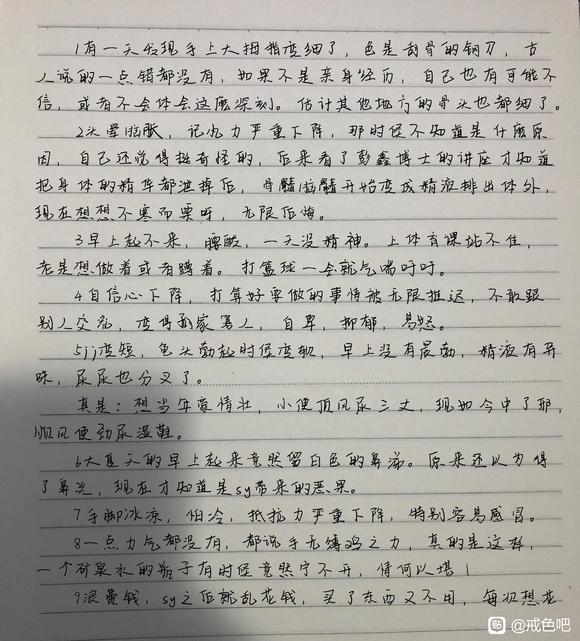 1有一天发现手上大拇指变细了，色是刮骨的钢刀，古
人说的一点错都没有，如果不是亲身经历，自己也有可能不
信，或者不会体会这麽深刻。估计其他地方的骨头也都细了。
2头晕脑胀，记忆力严重下降，那时侯不知道是什麽原
因，自己还觉得挺奇怪的，后来看了彭鑫博士的讲座才知道
把身体的精华都泄掉后，骨髓脑髓开始变成精液排出体外，
现在想想不寒而栗呀，无限后悔。
3早上起不来，腰酸，一天没精神。上体育课站不住，
老是想做着或者蹲着。打篮球一会就气喘吁吁。
4自信心下降，打算好要做的事情被无限推迟，不敢跟
别人交流，变得孤家寡人，自卑，抑郁，易怒。
5jj变短，龟头勃起时侯变软，早上没有晨勃，精液有异
味，尿尿也分叉了。
真是：想当年爱情壮，小便顶风尿三丈，现如今中了邪，
顺风使劲尿湿鞋。
6大夏天的早上起来竟然留白色的鼻涕。原来还以为得
了鼻炎，现在才知道是sy带来的恶果。
7手脚冰凉，怕冷，抵抗力严重下降，特别容易感冒。
8一点力气都没有，都说手无缚鸡之力，真的是这样，
一个矿泉水的瓶子有时侯竟然拧不开，情何以堪！
9浪费钱，sy之后就乱花钱，买了东西又不用，每次想花
贴 @戒色吧